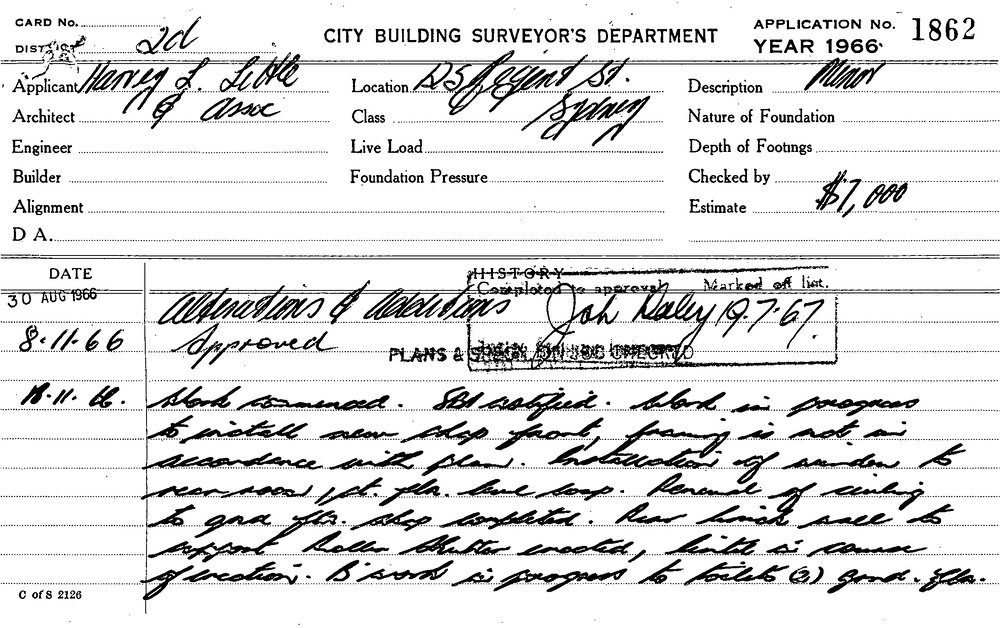 CARD No.
DISTRICT 2d
CITY BUILDING SURVEYOR'S DEPARTMENT
APPLICATION No. 1862
YEAR 1966
Applicant Harvey L. Little
Location 125 Regent St.
Description Minor
Architect & Assoc
Class Sydney
Nature of Foundation
Engineer
Live Load
Depth of Footings
Builder
Foundation Pressure
Checked by
Alignment
Estimate $7,000
D A.
DATE
HISTORY
Completed to approval Marked off list.
30 AUG 1966 Alterations & Additions
Joh Daley 19.7.67.
8.11.66 Approved
PLANS & SPECN. ON JOB CHECKED
18.11.66. Work commenced. SBI notified. Work in progress
to install new shop front, framing is not in
accordance with plan. Installation of window to
rear room, 1st. flr. level comp. Renewal of ceiling
to grnd flr. shop completed. Rear brick wall to
support Roller Shutter erected, lintel in course
of erection. B'work in progress to toilets (2) grnd. flr.
C of S 2126